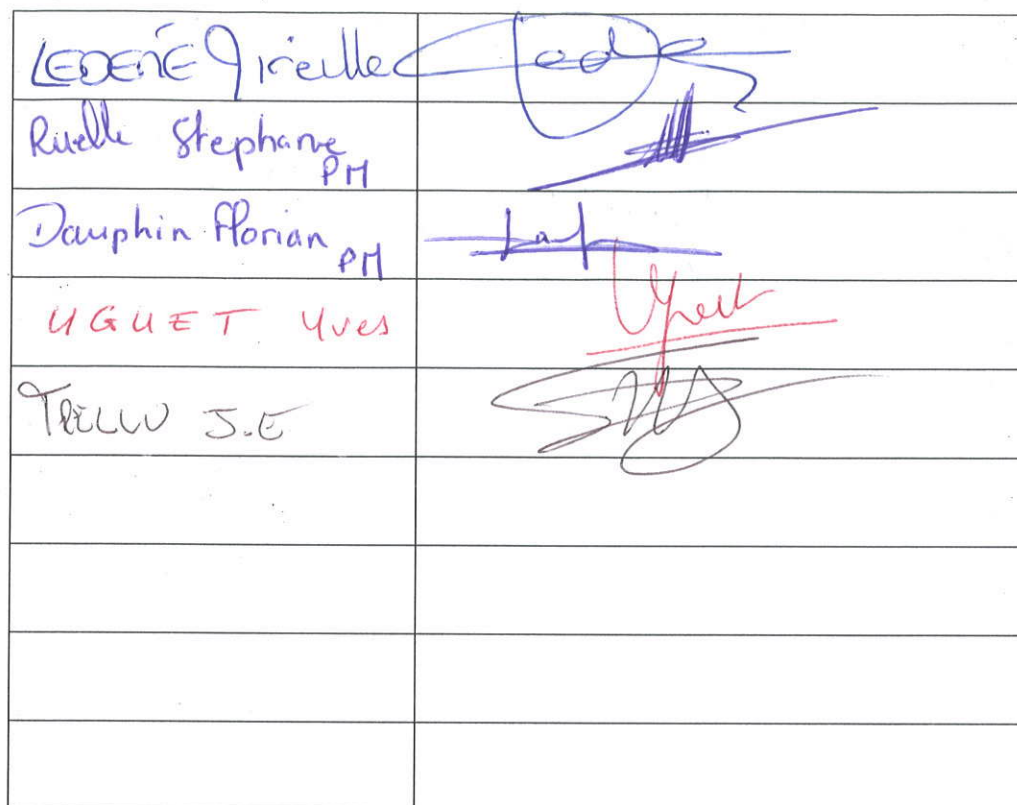 LEDENÉ Mireille
Ruelle Stephane
PM
Dauphin Florian
PM
UGUET Yves
TRELLU J.E